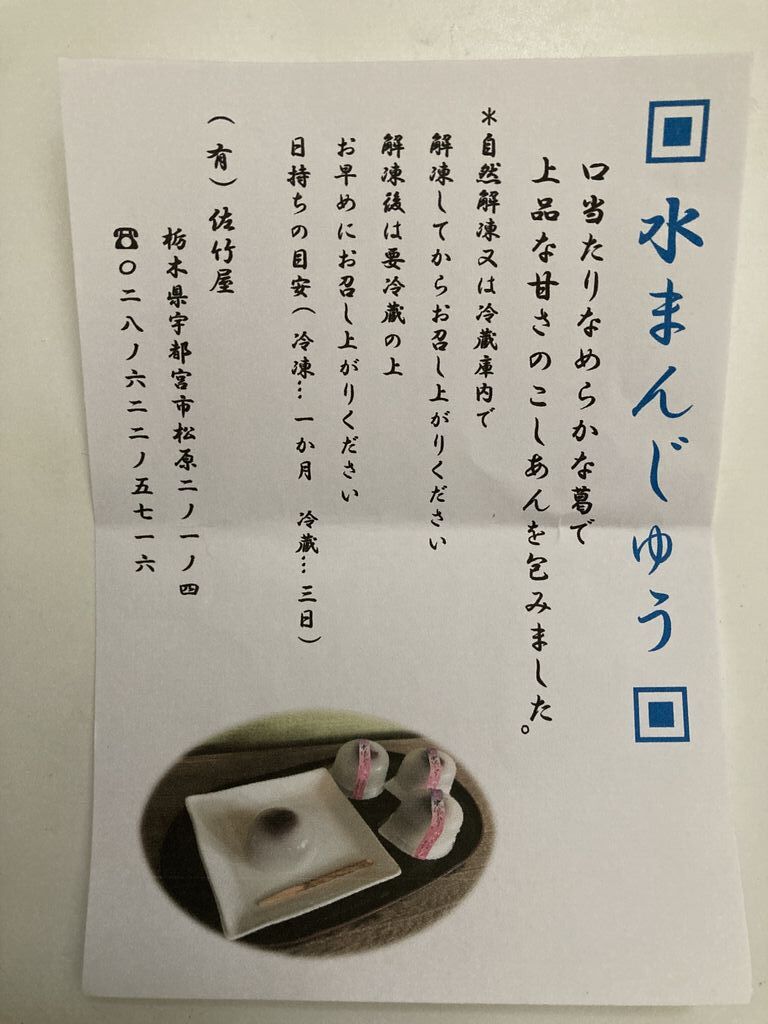 水まんじゅう
口当たりなめらかな葛で
上品な甘さのこしあんを包みました。
＊自然解凍又は冷蔵庫内で
解凍してからお召し上がりください
解凍後は要冷蔵の上
お早めにお召し上がりください
日持ちの目安(冷凍…一か月　冷蔵…三日)
(有)佐竹屋
栃木県宇都宮市松原二ノ一ノ四
☎〇二八ノ六二二ノ五七一六